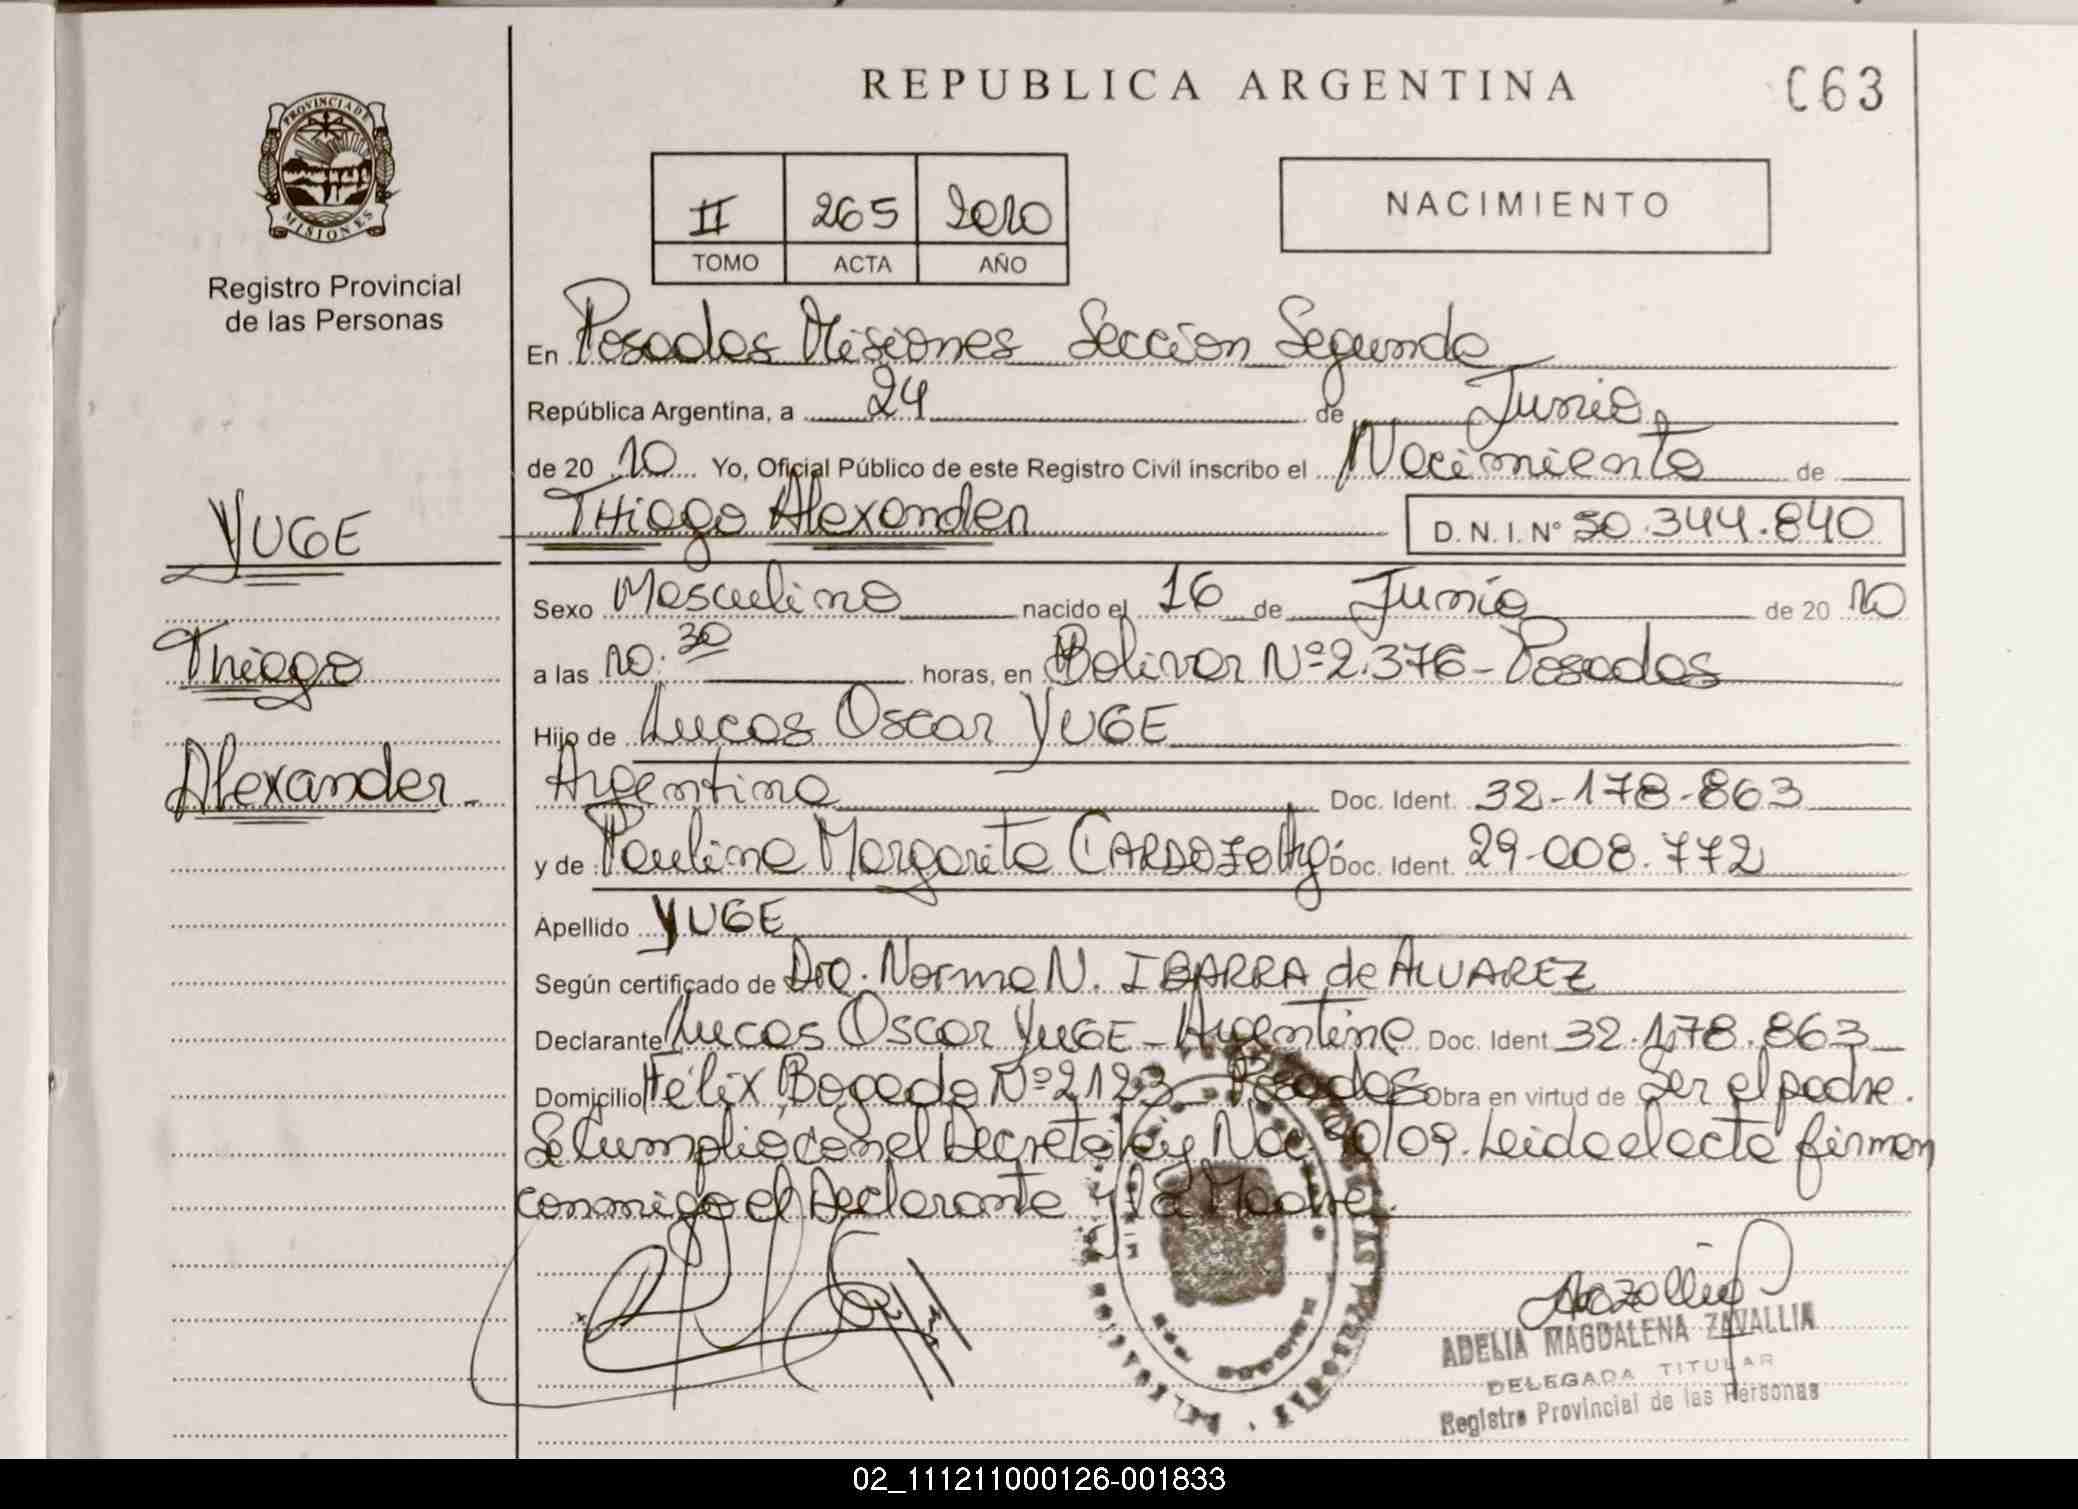 REPUBLICA ARGENTINA
C63
PROVINCIA DE
MISIONES
Registro Provincial
de las Personas
II 265 2010
TOMO ACTA AÑO
NACIMIENTO
En Posadas Misiones Sección Segunda
República Argentina, a 24 de Junio
de 20 10 Yo, Oficial Público de este Registro Civil inscribo el Nacimiento de
YUGE
Thiago Alexander
D. N. I. Nº 50.344.840
Sexo Masculino nacido el 16 de Junio de 20 10
Thiago
a las 10.30 horas, en Bolivar Nº 2.376 - Posadas
Hijo de Lucas Oscar YUGE
Alexander.-
Argentino Doc. Ident. 32-178-863
y de Paulina Margarita CARDOZO Arg. Doc. Ident. 29.008.772
Apellido YUGE
Según certificado de Dra. Norma N. IBARRA de ALVAREZ
Declarante Lucas Oscar YUGE - Argentino Doc. Ident 32.178.863
Domicilio Félix Bogado Nº 2123 - Posadas Obra en virtud de Ser el padre.
Se Cumplió con el Decreto Ley Nac. 90/09. Leida el acta firman
conmigo el Declarante y la Madre.
ADELIA MAGDALENA ZAVALLIA
DELEGADA TITULAR
Registro Provincial de las Personas
02_111211000126-001833